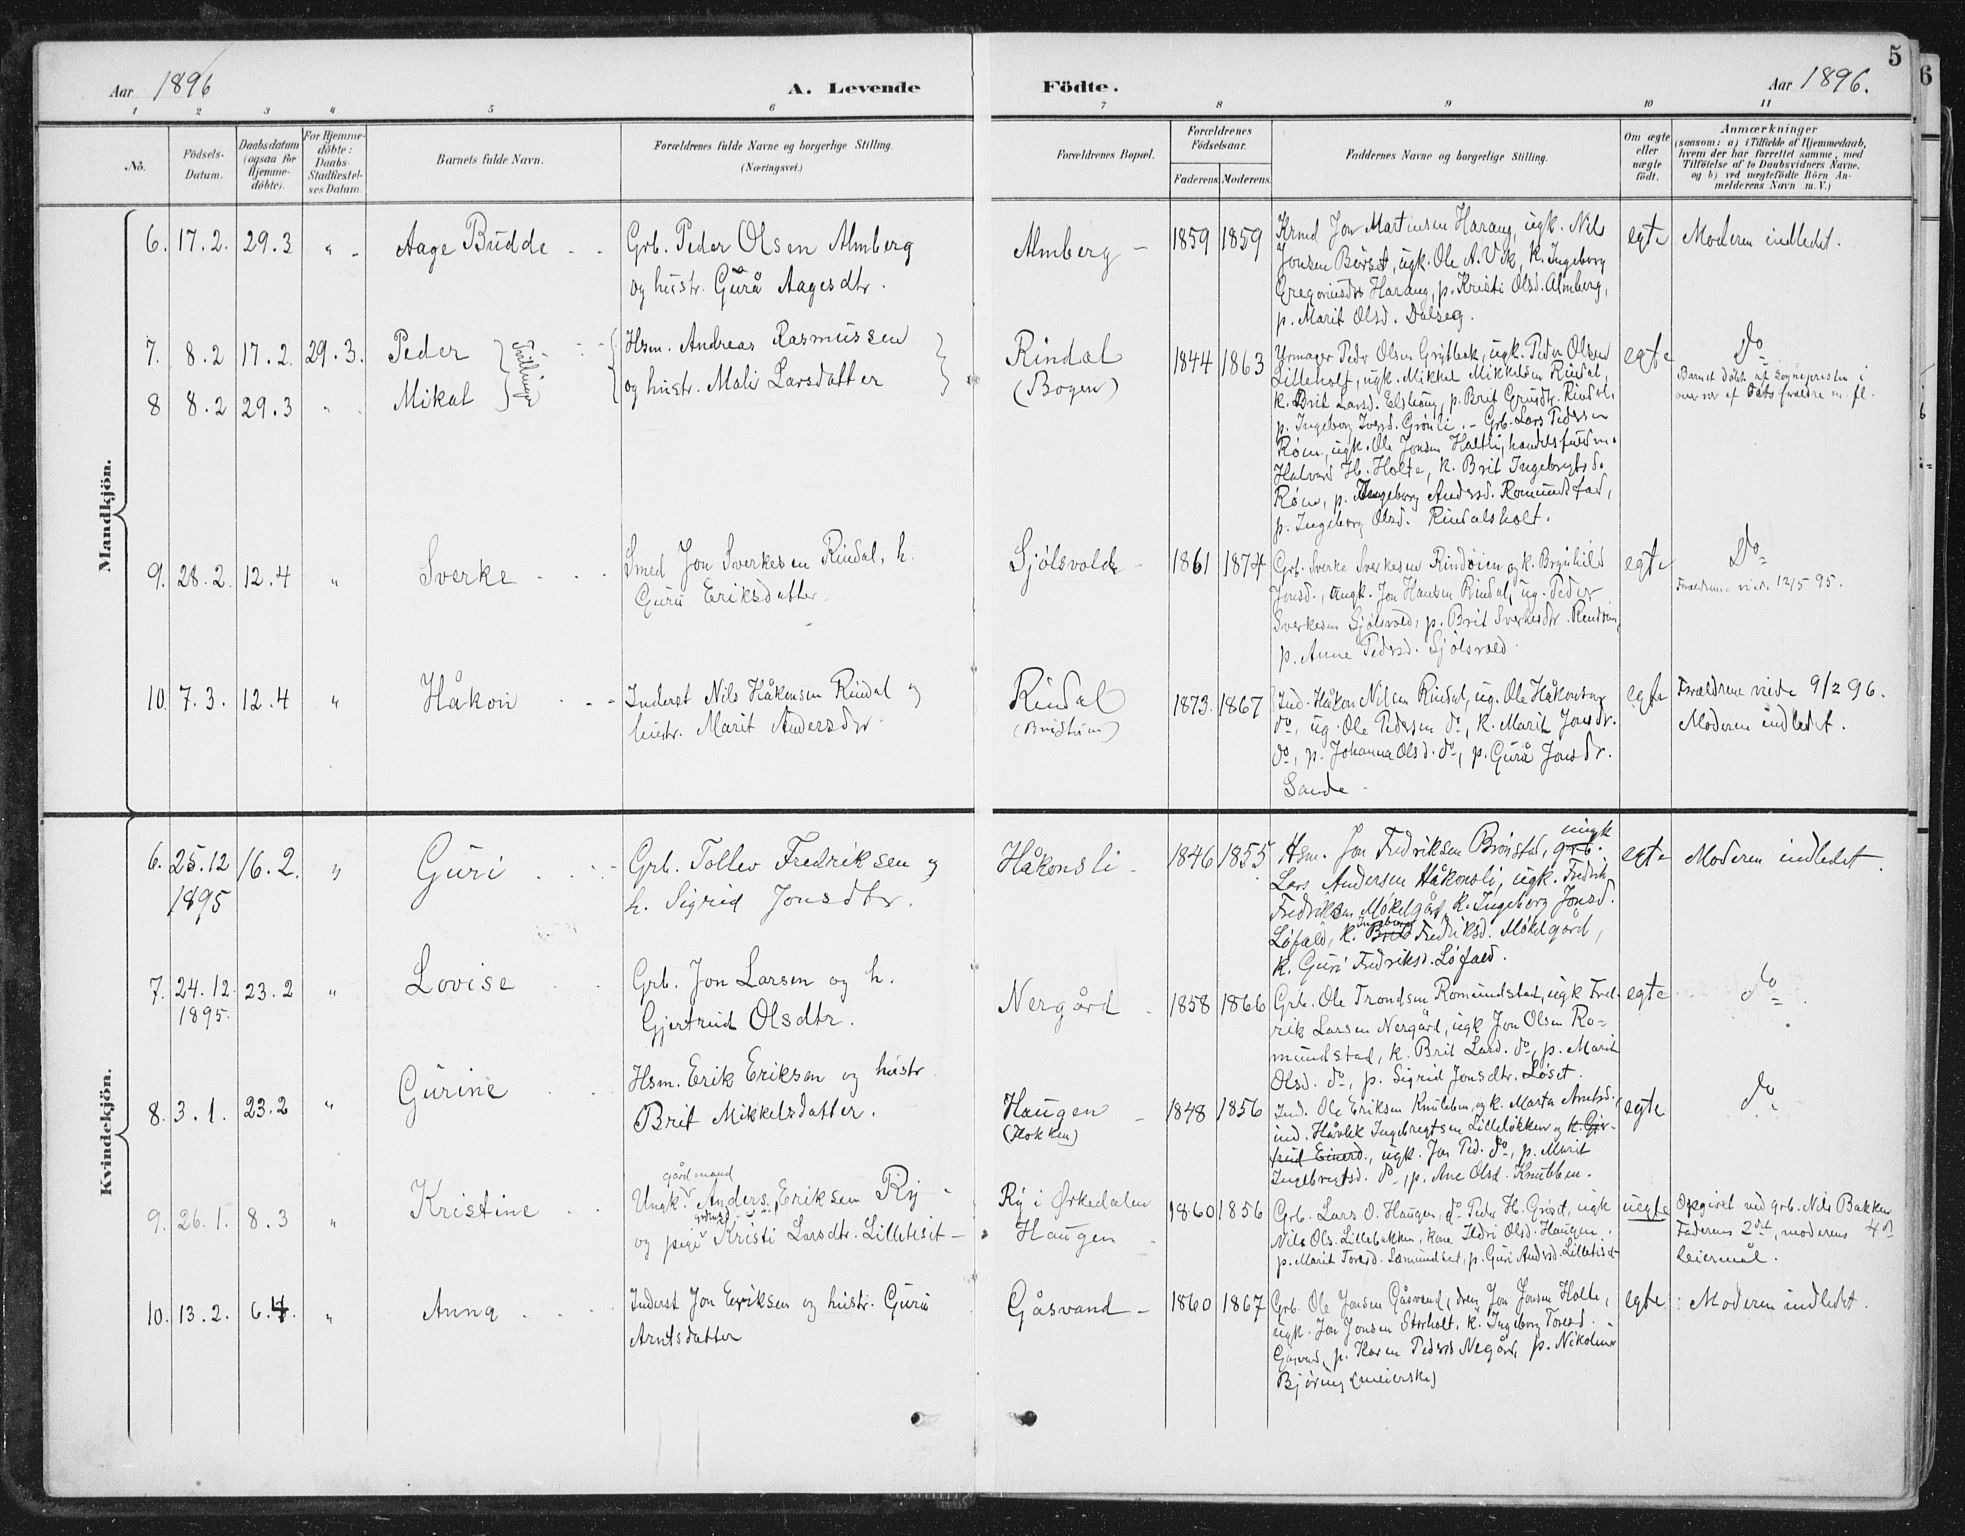 5
6
Aar 1896
A. Levende
Födte.
Aar 1896.
1 2 3 4 5 6 7 8 9 10 11
Nö.
Födsels-
Datum.
Daabsdatum
(ogsaa for
Hjemme-
döbte).
For Hjemme-
döbte:
Daabs-
Stadfæstel-
ses Datum.
Barnets fulde Navn.
Forældrenes fulde Navne og borgerlige Stilling.
(Næringsvei.)
Forældrenes Bopæl.
Forældrenes
Födselsaar.
Faderens Moderens
Faddernes Navne og borgerlige Stilling.
Om ægte
eller
uægte
födt.
Anmærkninger
(saasom: a) i Tilfælde af Hjemmedaab,
hvem der har forrettet samme, med
Tilföielse af to Daabsvidners Navne.
og b) ved uægtefödte Börn An-
melderens Navn m. V.)
Mandkjön.
6. 17.2. 29.3 " Aage Budde
Grb. Peder Olsen Almberg
og hustr. Gurå Aagesdtr.
Almberg
1859 1859
Krmd Jon Martinsen Harang, ugk. Nils
Jonsen Börset, ugk. Ole A. Vik, k. Ingeborg
Gregoriusdtr Harang, p. Kristi Olsd. Almberg,
p. Marit Olsd. Dalseg.
egte
Moderen indledet.
7. 8.2 17.2. 29.3. Peder
8 8.2 29.3 " Mikal
Tvillinger
Hsm. Andreas Rasmussen
og hustr. Mali Larsdatter
Rindal
(Bogen)
1844 1863
Urmager Peder Olsen Grytbak, ugk. Peder Olsen
Lilleholt, ugk. Mikkel Mikkelsen Rindal,
k. Brit Larsd. Elshaug, p. Brit Rindal,
p. Ingeborg Iversd. Grönli. - Grb. Lars Pedersen
Röen, ugk. Ole Jonsen Haltli, handelsfuldm.
Halvard H. Holte, k. Brit Ingebrigtsd.
Röen, p. Ingeborg Andersd. Romundstad,
p. Ingeborg Olsd. Rindalsholt.
egte
Do
Barnet döbt af sognepresten i
overvær af forældre m. fl.
9. 28.2. 12.4 " Sverke
Smed Jon Sverkesen Rindal, h.
Guru Eriksdatter
Sjölsvold
1861 1874
Grb. Sverke Sverkesen Rindöien og k. Brynhild
Jonsd., ungk. Jon Hansen Rindal, ug. Peder
Sverkesen Sjölsvold, p. Brit Sverkesdtr.
p. Anne Pedersd. Sjölsvold.
egte
Do
Forældrene viede 12/5 95.
10. 7.3. 12.4 " Håkon
Inderst Nils Håkonsen Rindal og
hustr. Marit Andersdtr
Rindal
1873. 1867
Ind. Håkon Nilsen Rindal, ug. Ole Håkonsen
do, ug. Ole Pedersen do, k. Marit Jonsdr.
do, p. Johanna Olsd. do, p. Gurå Jonsdr.
Sande.
egte
Forældrene viede 9/2 96.
Moderen indledet.
Kvindekjön.
6. 25.12 16.2. " Guri
1895
Grb. Tollev Fredriksen og
h. Sigrid Jonsdtr.
Håkonsli
1846 1855
ungk
Hsm. Jon Fredriksen Brönstad, grb.
Lars Andersen Håkonsli, ugk. Fredrik
Fredriksen Mökelgård, k. Ingeborg Jonsd.
Ingeborg
Löfald, k. Brit Fredriksd. Mökelgård,
k. Guri Fredriksd. Löfald.
egte
Moderen indledet.
7. 24.12. 23.2 " Lovise
1895.
Grb. Jon Larsen og h.
Gjertrud Olsdtr.
Nergård
1858 1866
Grb. Ole Trondsen Romundstad, ugk Fred-
rik Larsen Nergård, ugk Jon Olsen Ro-
mundstad, k. Brit Larsd. do, p. Marit
Olsd. do, p. Sigrid Jonsdtr. Löset.
egte
do
8. 3.1. 23.2 " Gurine
Hsm. Erik Eriksen og hustr
Brit Mikkelsdatter.
Haugen
(Flokken)
1848 1856
Ind. Ole Eriksen Knubben, og k. Marta Arntsd.,
ind. Ingebregtsen Lillelökken og k. Gjer-
trud Einersd., ugk. Jon Ped. do, p. Marit
Ingebregtsd. do, p. Ane Olsd. Knubben.
egte
do
9. 26.1. 8.3 " Kristine
gårdmand
Ungk. Anders Eriksen Ry
og pige Kristi Larsdtr. Lilletiset
Ry i Ørkedalen
Haugen
1860 1856
Grb. Lars O. Haugen, do Peder H. Gröset, ugk
Nils Ols. Lillebakken, kone Ildri Olsd. Haugen,
p. Marit Toresd. Sæmundset, p. Guri Andersd. Lilletiset
uegte
Opgivet ved grb. Nils Bakken
Faderens 2det, moderens 4de
leiermål.
10. 13.2. 6.4. " Anna
Inderst Jon Eriksen og hustr. Guru
Arntsdatter
Gåsvand
1860 1867
Grb. Ole Jonsen Gåsvand, dreng Jon Jonsen Holte,
ugk. Jon Jonsen Storholt, k. Ingeborg Toresd.
Gåsvand, p. Karen Pedersd Negård, p. Nikoline
Björing (meierske)
egte
Moderen indledet.